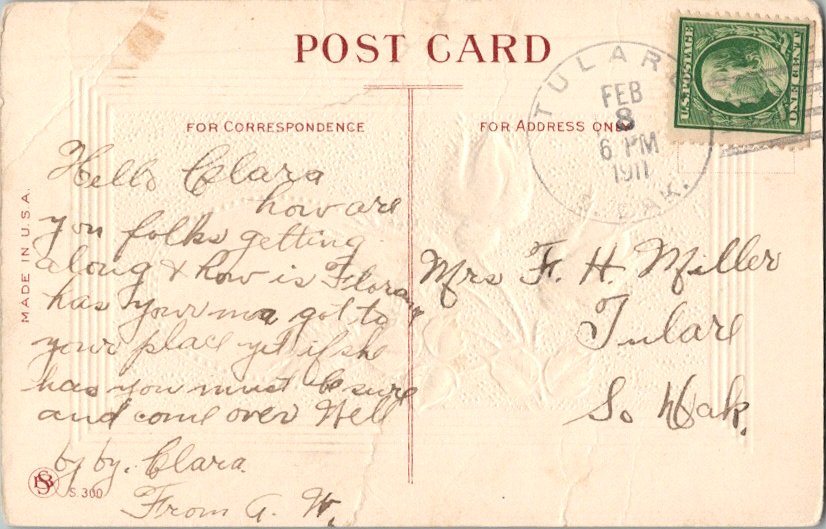 POST CARD
U.S. POSTAGE
ONE CENT
TULARE
FEB
8
6 PM
1911
S. DAK.
FOR CORRESPONDENCE
FOR ADDRESS ONLY
Hello Clara
how are
you folks getting
along & how is Flora
has your ma got to
your place yet if she
has you must be sure
and come over Well
by by. Clara.
From A. W.
Mrs F. H. Miller
Tulare
So Dak.
MADE IN U.S.A.
S. 300